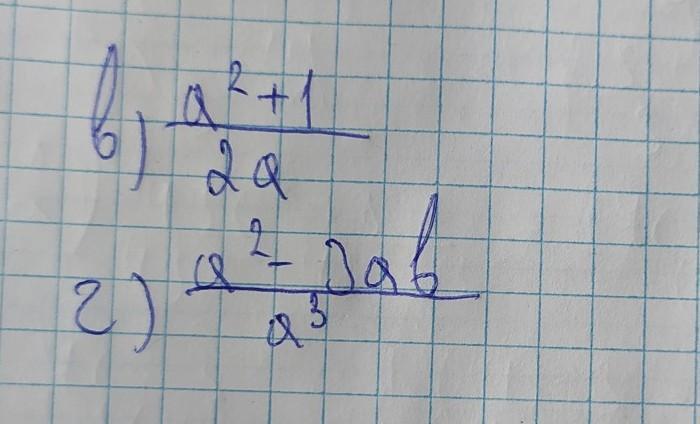 в) a² + 1
2a
г) a² - 3ab
a³